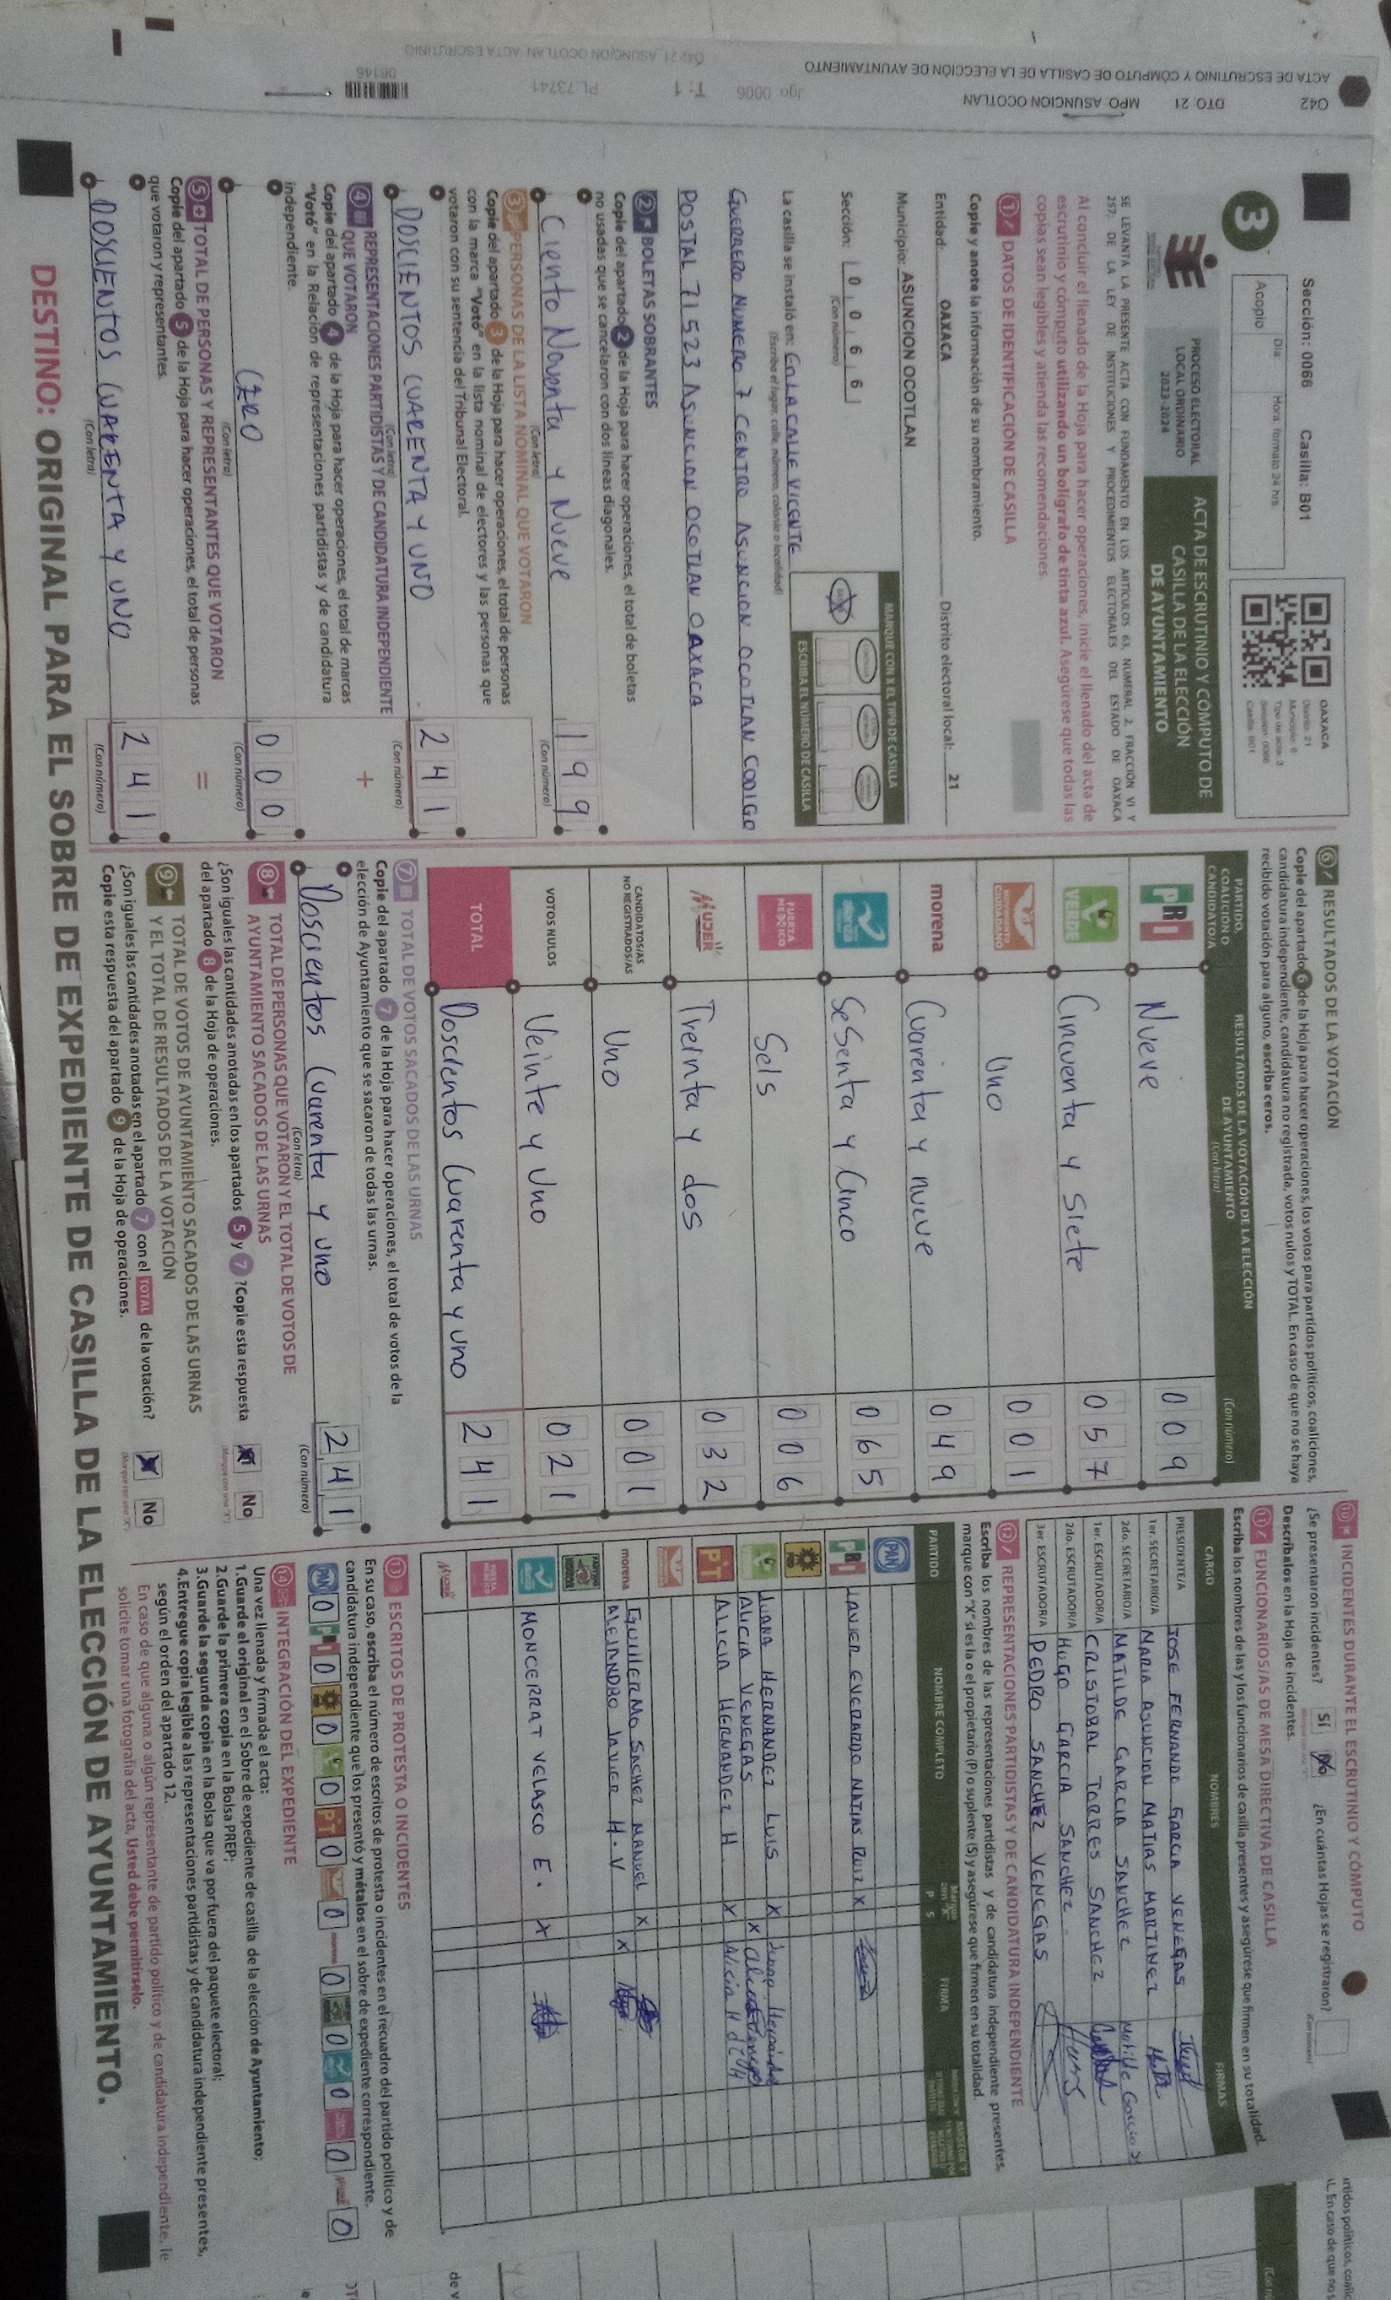 ACTA DE ESCRUTINIO Y CÓMPUTO DE CASILLA DE LA ELECCIÓN DE AYUNTAMIENTO
042 DTO 21 MPO ASUNCION OCOTLAN
Jgo 0006 T: 1 PL.73741
042 21 ASUNCION OCOTLAN ACTA ESCRUTINIO
06146
Sección: 0066 Casilla: B01
Día Hora formato 24 hrs
Acopio
3
OAXACA
Distrito: 21
Municipio: 6
Tipo de acta: 3
Sección: 0066
Casilla: B01
PROCESO ELECTORAL
LOCAL ORDINARIO
2023-2024
ACTA DE ESCRUTINIO Y CÓMPUTO DE
CASILLA DE LA ELECCIÓN
DE AYUNTAMIENTO
SE LEVANTA LA PRESENTE ACTA CON FUNDAMENTO EN LOS ARTÍCULOS 63, NUMERAL 2, FRACCIÓN VI Y
257; DE LA LEY DE INSTITUCIONES Y PROCEDIMIENTOS ELECTORALES DEL ESTADO DE OAXACA
Al concluir el llenado de la Hoja para hacer operaciones, inicie el llenado del acta de
escrutinio y cómputo utilizando un bolígrafo de tinta azul. Asegúrese que todas las
copias sean legibles y atienda las recomendaciones.
1 DATOS DE IDENTIFICACIÓN DE CASILLA
Copie y anote la información de su nombramiento.
Entidad: OAXACA Distrito electoral local: 21
Municipio: ASUNCION OCOTLAN
Sección: 0 0 6 6
(Con número)
MARQUE CON X EL TIPO DE CASILLA
ESCRIBA EL NÚMERO DE CASILLA
La casilla se instaló en: EN LA CALLE VICENTE
(Escriba el lugar, calle, número, colonia o localidad)
GUERRERO NUMERO 7 CENTRO ASUNCION OCOTLAN CODIGO
POSTAL 71523 ASUNCION OCOTLAN OAXACA
2 BOLETAS SOBRANTES
Copie del apartado 2 de la Hoja para hacer operaciones, el total de boletas
no usadas que se cancelaron con dos líneas diagonales.
Ciento Noventa y Nueve 1 9 9
(Con letra) (Con número)
3 PERSONAS DE LA LISTA NOMINAL QUE VOTARON
Copie del apartado 3 de la Hoja para hacer operaciones, el total de personas
con la marca "Votó" en la lista nominal de electores y las personas que
votaron con su sentencia del Tribunal Electoral.
DOSCIENTOS CUARENTA Y UNO 2 4 1
(Con letra) (Con número)
4 REPRESENTACIONES PARTIDISTAS Y DE CANDIDATURA INDEPENDIENTE
QUE VOTARON
+
Copie del apartado 4 de la Hoja para hacer operaciones, el total de marcas
"Votó" en la Relación de representaciones partidistas y de candidatura
independiente.
CERO 0 0 0
(Con letra) (Con número)
5 TOTAL DE PERSONAS Y REPRESENTANTES QUE VOTARON
=
Copie del apartado 5 de la Hoja para hacer operaciones, el total de personas
que votaron y representantes.
DOSCIENTOS CUARENTA Y UNO 2 4 1
(Con letra) (Con número)
6 RESULTADOS DE LA VOTACIÓN
Copie del apartado 6 de la Hoja para hacer operaciones, los votos para partidos políticos, coaliciones,
candidatura independiente, candidatura no registrada, votos nulos y TOTAL. En caso de que no se haya
recibido votación para alguno, escriba ceros.
PARTIDO, COALICIÓN O CANDIDATO/A
RESULTADOS DE LA VOTACIÓN DE LA ELECCIÓN DE AYUNTAMIENTO
(Con letra) (Con número)
PRI Nueve 0 0 9
VERDE Cincuenta y Siete 0 5 7
MOVIMIENTO CIUDADANO Uno 0 0 1
morena Cuarenta y nueve 0 4 9
nueva alianza Sesenta y Cinco 0 6 5
FUERZA MÉXICO Seis 0 0 6
MUJER Treinta y dos 0 3 2
CANDIDATOS/AS NO REGISTRADOS/AS Uno 0 0 1
VOTOS NULOS Veinte y Uno 0 2 1
TOTAL Doscientos Cuarenta y uno 2 4 1
7 TOTAL DE VOTOS SACADOS DE LAS URNAS
Copie del apartado 7 de la Hoja para hacer operaciones, el total de votos de la
elección de Ayuntamiento que se sacaron de todas las urnas.
Doscientos Cuarenta y uno 2 4 1
(Con letra) (Con número)
8 TOTAL DE PERSONAS QUE VOTARON Y EL TOTAL DE VOTOS DE
AYUNTAMIENTO SACADOS DE LAS URNAS
¿Son iguales las cantidades anotadas en los apartados 5 y 7 ? Copie esta respuesta
del apartado 8 de la Hoja de operaciones.
No
9 TOTAL DE VOTOS DE AYUNTAMIENTO SACADOS DE LAS URNAS
Y EL TOTAL DE RESULTADOS DE LA VOTACIÓN
¿Son iguales las cantidades anotadas en el apartado 7 con el TOTAL de la votación?
Copie esta respuesta del apartado 9 de la Hoja de operaciones.
No
10 INCIDENTES DURANTE EL ESCRUTINIO Y CÓMPUTO
¿Se presentaron incidentes? Sí No ¿En cuántas Hojas se registraron?
Descríbalos en la Hoja de incidentes.
11 FUNCIONARIOS/AS DE MESA DIRECTIVA DE CASILLA
Escriba los nombres de las y los funcionarios de casilla presentes y asegúrese que firmen en su totalidad.
CARGO NOMBRES FIRMAS
PRESIDENTE/A JOSE FERNANDO GARCIA VENEGAS
1er. SECRETARIO/A MARIA ASUNCION MATIAS MARTINEZ
2do. SECRETARIO/A MATILDE GARCIA SANCHEZ Matilde Garcia S
1er. ESCRUTADOR/A CRISTOBAL TORRES SANCHEZ
2do. ESCRUTADOR/A HUGO GARCIA SANCHEZ
3er. ESCRUTADOR/A PEDRO SANCHEZ VENEGAS
12 REPRESENTACIONES PARTIDISTAS Y DE CANDIDATURA INDEPENDIENTE
Escriba los nombres de las representaciones partidistas y de candidatura independiente presentes,
marque con "X" si es la o el propietario (P) o suplente (S) y asegúrese que firmen en su totalidad.
PARTIDO NOMBRE COMPLETO P S FIRMA
PAN
PRI JAVIER EVERARDO MATIAS RUIZ X
PRD
JUANA HERNANDEZ LUIS X Juana Hernández
ALICIA VENEGAS X
PT ALICIA HERNANDEZ H. X Alicia H
morena GUILLERMO SACHEZ MANUEL X
ALEJANDRO JAVIER H.V X
MONCERRAT VELASCO E. X
13 ESCRITOS DE PROTESTA O INCIDENTES
En su caso, escriba el número de escritos de protesta o incidentes en el recuadro del partido político y de
candidatura independiente que los presentó y métalos en el sobre de expediente correspondiente.
PAN 0 PRI 0 PRD 0 0 PT 0 0 0 0 0 0 0
14 INTEGRACIÓN DEL EXPEDIENTE
Una vez llenada y firmada el acta:
1.Guarde el original en el Sobre de expediente de casilla de la elección de Ayuntamiento;
2.Guarde la primera copia en la Bolsa PREP;
3.Guarde la segunda copia en la Bolsa que va por fuera del paquete electoral;
4.Entregue copia legible a las representaciones partidistas y de candidatura independiente presentes,
según el orden del apartado 12.
En caso de que alguna o algún representante de partido político y de candidatura independiente, le
solicite tomar una fotografía del acta, Usted debe permitírselo.
DESTINO: ORIGINAL PARA EL SOBRE DE EXPEDIENTE DE CASILLA DE LA ELECCIÓN DE AYUNTAMIENTO.